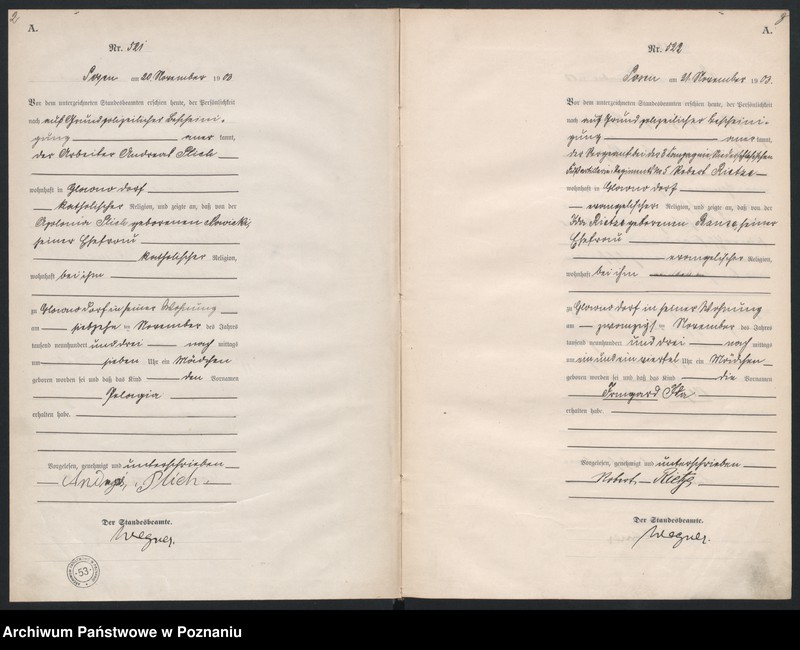 2
A.
Nr. 521
Posen am 20. November 1903
Vor dem unterzeichneten Standesbeamten erschien heute, der Persönlichkeit
nach auf Grund polizeilicher Bescheini-
gung anerkannt,
der Arbeiter Andreas Plich
wohnhaft in Glowno Dorf
katholischer Religion, und zeigte an, daß von der
Apolonia Plich geborenen Nowicki,
seiner Ehefrau
katholischer Religion,
wohnhaft bei ihm
zu Glowno Dorf in seiner Wohnung
am siebzehn ten November des Jahres
tausend neunhundert und drei nach mittags
um sieben Uhr ein Mädchen
geboren worden sei und daß das Kind den Vornamen
Pelagia
erhalten habe.
Vorgelesen, genehmigt und unterschrieben
Plich
Der Standesbeamte.
Wegner.
53
A.
Nr. 522
Posen am 21. November 1903.
Vor dem unterzeichneten Standesbeamten erschien heute, der Persönlichkeit
nach auf Grund polizeilicher Bescheini-
gung anerkannt,
der Sergeant bei der 8 Compagnie Niederschlesischen
Fußartillerie Regiments No 5 Robert Rietze
wohnhaft in Glowno Dorf
evangelischer Religion, und zeigte an, daß von der
Ida Rietze geborenen seiner
Ehefrau
evangelischer Religion,
wohnhaft bei ihm
zu Glowno Dorf in seiner Wohnung
am zwanzigsten November des Jahres
tausend neunhundert und drei nach mittags
um ein und ein viertel Uhr ein Mädchen
geboren worden sei und daß das Kind die Vornamen
Irmgard Ida
erhalten habe.
Vorgelesen, genehmigt und unterschrieben
Robert Rietze
Der Standesbeamte.
Wegner.
Archiwum Państwowe w Poznaniu